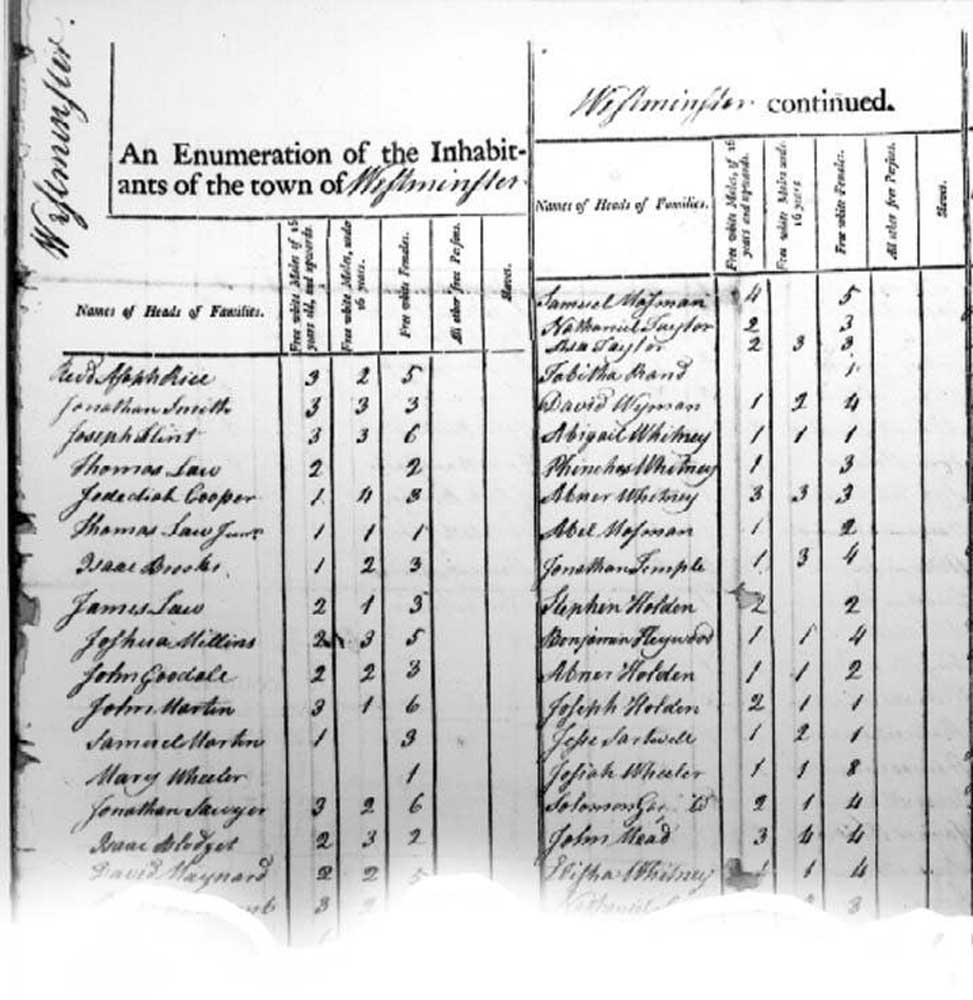 Westminster.
An Enumeration of the Inhabit-
ants of the town of Westminster
Names of Heads of Families.
Free white Males of 16 years old, and upwards.
Free white Males, under 16 years.
Free white Females.
All other free Persons.
Slaves.
Revd Asaph Rice 3 2 5
Jonathan Smith 3 3 3
Joseph Flint 3 3 6
Thomas Law 2 2
Jedediah Cooper 1 4 3
Thomas Law Junr 1 1 1
Isaac Brooks 1 2 3
James Law 2 1 3
Joshua Millins 2 3 5
John Goodale 2 2 3
John Martin 3 1 6
Samuel Martin 1 3
Mary Wheeler 1
Jonathan Sawyer 3 2 6
Isaac Blodget 2 3 2
David Maynard 2 2 5
3 2
Westminster continued.
Names of Heads of Families.
Free white Males, of 16 years and upwards.
Free white Males under 16 years.
Free white Females.
All other free Persons.
Slaves.
Samuel Mosman 4 5
Nathaniel Taylor 2 3
Asa Taylor 2 3 3
Tabitha Rand 1
David Wyman 1 2 4
Abigail Whitney 1 1 1
Phinehas Whitney 1 3
Abner Whitney 3 3 3
Abel Mosman 1 2
Jonathan Temple 1 3 4
Stephen Holden 2 2
Benjamin Heywood 1 1 4
Abner Holden 1 1 2
Joseph Holden 2 1 1
Jesse Sartwell 1 2 1
Josiah Wheeler 1 1 8
Solomon 2 1 4
John Mead 3 4 4
Elisha Whitney 1 1 4
Nathaniel 3